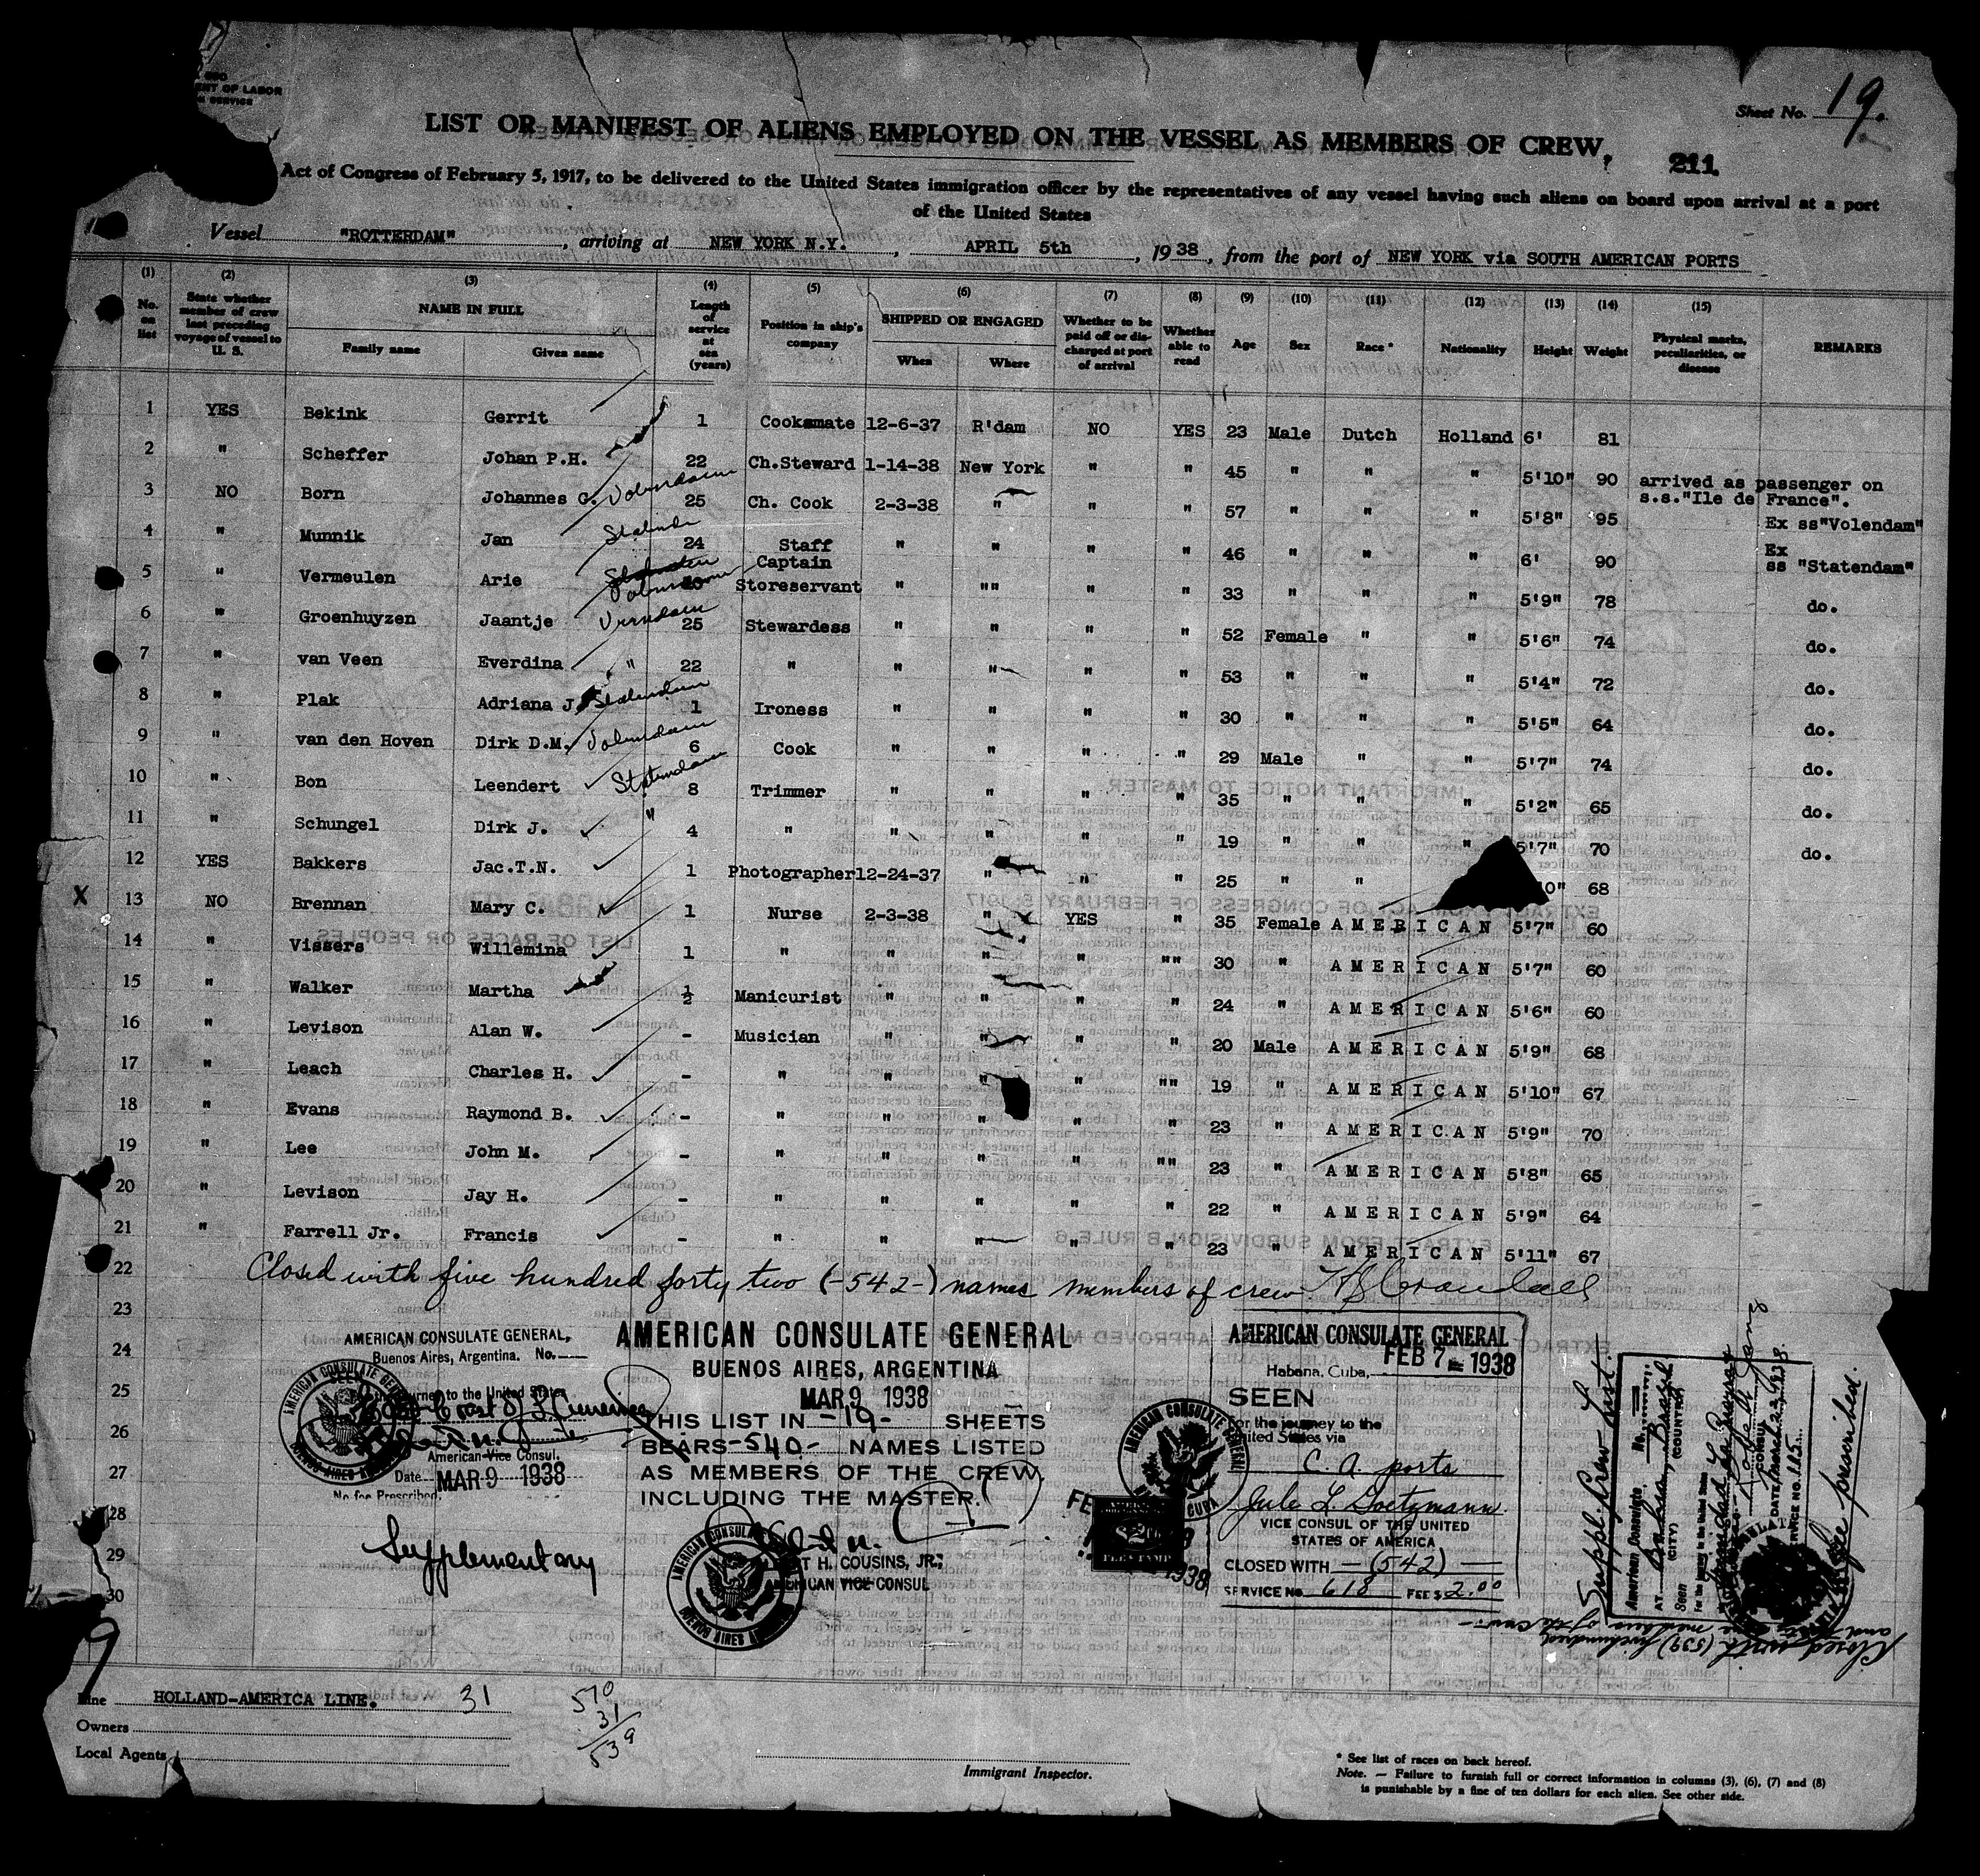 ENT OF LABOR
SERVICE
Sheet No. 19.
LIST OR MANIFEST OF ALIENS EMPLOYED ON THE VESSEL AS MEMBERS OF CREW,
211.
Act of Congress of February 5, 1917, to be delivered to the United States immigration officer by the representatives of any vessel having such aliens on board upon arrival at a port
of the United States
Vessel "ROTTERDAM", arriving at NEW YORK N.Y., APRIL 5th, 1938, from the port of NEW YORK via SOUTH AMERICAN PORTS
(1) No. on list
(2) State whether member of crew last preceding voyage of vessel to U. S.
(3) NAME IN FULL Family name Given name
(4) Length of service at sea (years)
(5) Position in ship's company
(6) SHIPPED OR ENGAGED When Where
(7) Whether to be paid off or discharged at port of arrival
(8) Whether able to read
(9) Age
(10) Sex
(11) Race *
(12) Nationality
(13) Height
(14) Weight
(15) Physical marks, peculiarities, or disease
REMARKS
1 YES Bekink Gerrit 1 Cooksmate 12-6-37 R'dam NO YES 23 Male Dutch Holland 6' 81
2 " Scheffer Johan P.H. 22 Ch.Steward 1-14-38 New York " " 45 " " " 5'10" 90 arrived as passenger on s.s."Ile de France".
3 NO Born Johannes G. Volendam 25 Ch. Cook 2-3-38 " " " 57 " " " 5'8" 95 Ex ss"Volendam"
4 " Munnik Jan 24 Staff Captain " " " " 46 " " " 6' 90 Ex ss "Statendam"
5 " Vermeulen Arie Storeservant " "" " " 33 " " " 5'9" 78 do.
6 " Groenhuyzen Jaantje 25 Stewardess " " " " 52 Female " " 5'6" 74 do.
7 " van Veen Everdina " 22 " " " " " 53 " " " 5'4" 72 do.
8 " Plak Adriana J. Statendam 1 Ironess " " " " 30 " " " 5'5" 64 do.
9 " van den Hoven Dirk D.M. Volendam 6 Cook " " " " 29 Male " " 5'7" 74 do.
10 " Bon Leendert Statendam 8 Trimmer " " " " 35 " " " 5'2" 65 do.
11 " Schungel Dirk J. " 4 " " " " " 19 " " " 5'7" 70 do.
12 YES Bakkers Jac.T.N. 1 Photographer 12-24-37 " " " 25 " " 0" 68
X 13 NO Brennan Mary C. 1 Nurse 2-3-38 " YES " 35 Female AMERICAN 5'7" 60
14 " Vissers Willemina 1 " " " " "" 30 " AMERICAN 5'7" 60
15 " Walker Martha ½ Manicurist " " " " 24 " AMERICAN 5'6" 60
16 " Levison Alan W. - Musician " " " " 20 Male AMERICAN 5'9" 68
17 " Leach Charles H. - " " " " "" 19 " AMERICAN 5'10" 67
18 " Evans Raymond B. - " " " " " 23 " AMERICAN 5'9" 70
19 " Lee John M. - " " " " "" 23 " AMERICAN 5'8" 65
20 " Levison Jay H. - " " " " " 22 " AMERICAN 5'9" 64
21 " Farrell Jr. Francis - " " " " " 23 " AMERICAN 5'11" 67
22 Closed with five hundred forty two (-542-) names members of crew
23
24
25
26
27
28
29
30
AMERICAN CONSULATE GENERAL,
Buenos Aires, Argentina. No.
American Vice Consul.
Date MAR 9 1938
No fee Prescribed.
Supplementary
AMERICAN CONSULATE GENERAL
BUENOS AIRES, ARGENTINA
MAR 9 1938
THIS LIST IN -19- SHEETS
BEARS -540- NAMES LISTED
AS MEMBERS OF THE CREW,
INCLUDING THE MASTER.
H. COUSINS, JR.
AMERICAN VICE CONSUL
AMERICAN CONSULATE GENERAL
Habana, Cuba, FEB 7 1938
SEEN
For the journey to the
United States via
C. A. ports
Jule L. Goetzmann
VICE CONSUL OF THE UNITED
STATES OF AMERICA
CLOSED WITH (542)
SERVICE No. 618 FEE $ 2.00
Suppl. Crew List.
American Consulate No.
AT Bahia, Brazil
(CITY) (COUNTRY)
Seen
For the journey to the United States
CONSUL
DATE March 22, 1938.
SERVICE NO. 115
No fee prescribed.
Closed with five hundred and (539) members of the crew
Line HOLLAND-AMERICA LINE. 31
570
31
539
Owners
Local Agents
Immigrant Inspector.
* See list of races on back hereof.
Note. — Failure to furnish full or correct information in columns (3), (6), (7) and (8)
is punishable by a fine of ten dollars for each alien. See other side.